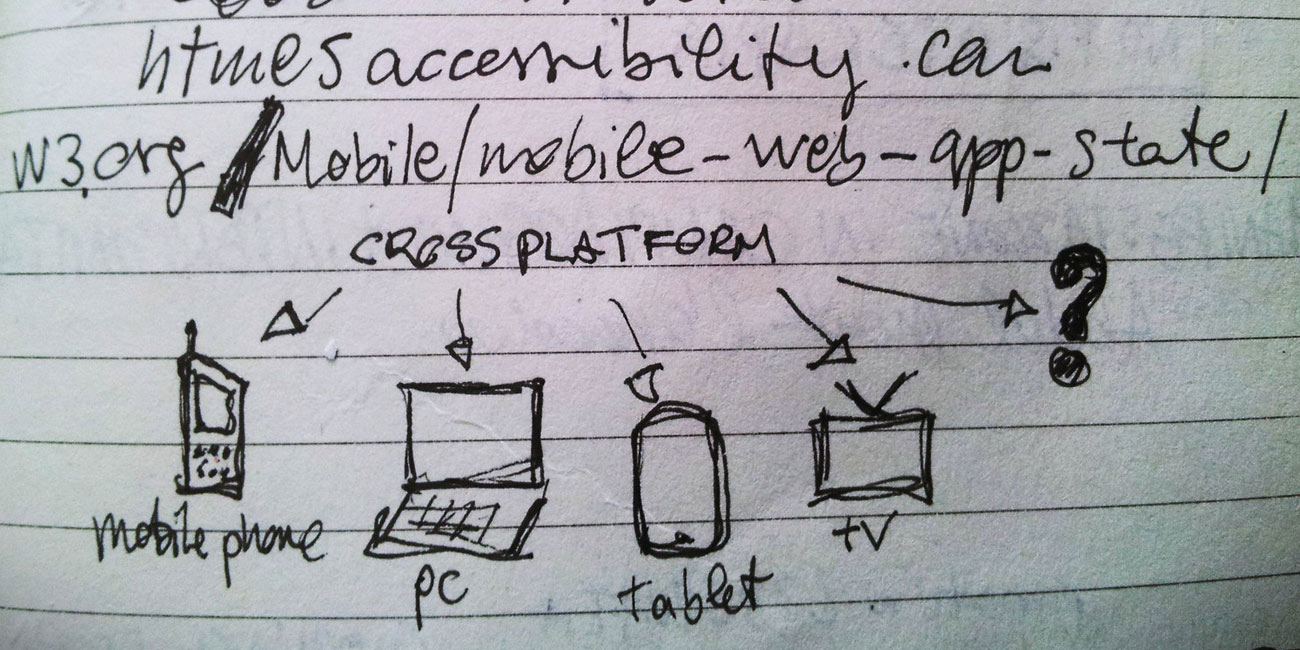 html5accessibility.com
w3.org/Mobile/mobile-web-app-state/
CROSSPLATFORM
?
mobile phone
pc
tablet
tv